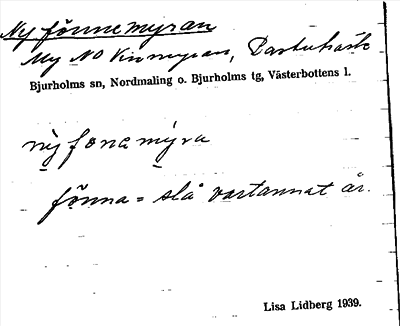 Ny fönnemyran
My NO Vinmyran,
Bjurholms sn, Nordmaling o. Bjurholms tg, Västerbottens l.
nỵ̀ fǫnamỵ̀ra
fǫ̈nna = slå vartannat år.
Lisa Lidberg 1939.